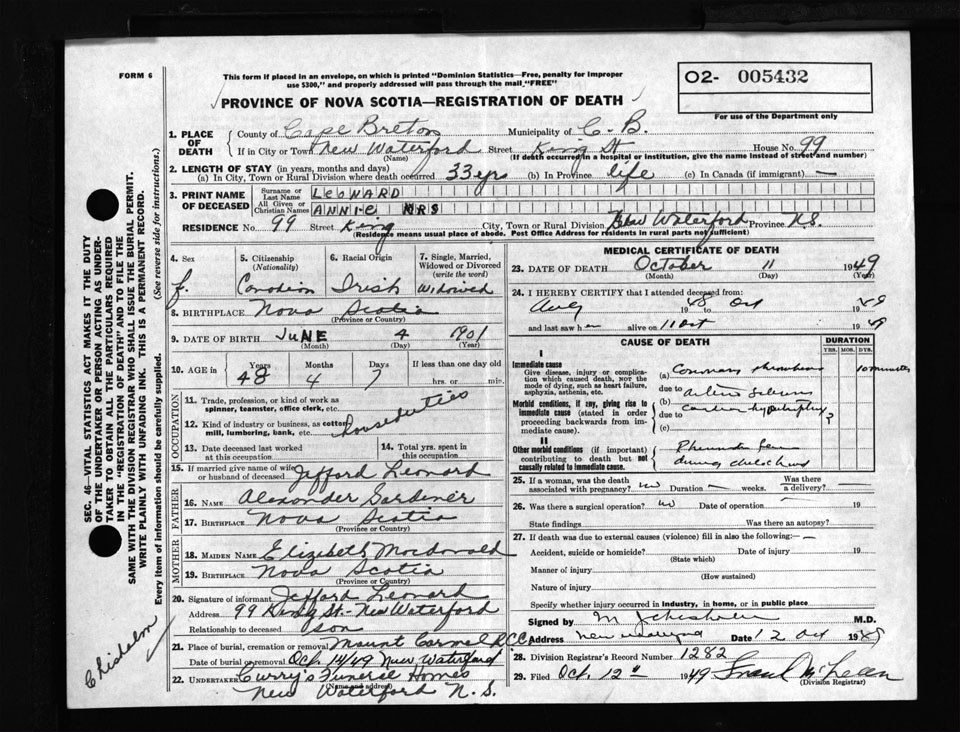 FORM 6
This form if placed in an envelope, on which is printed "Dominion Statistics—Free, penalty for improper
use $300," and properly addressed will pass through the mail "FREE"
O2- 005432
PROVINCE OF NOVA SCOTIA—REGISTRATION OF DEATH
For use of the Department only
1. PLACE OF DEATH
County of Cape Breton Municipality of C. B.
If in City or Town New Waterford Street King St House No. 99
(Name) (If death occurred in a hospital or institution, give the name instead of street and number)
2. LENGTH OF STAY (in years, months and days)
(a) In City, Town or Rural Division where death occurred 33 yrs (b) In Province life (c) In Canada (if immigrant) —
3. PRINT NAME OF DECEASED
Surname or Last Name LEONARD
All Given or Christian Names ANNIE MRS
RESIDENCE No. 99 Street King City, Town or Rural Division New Waterford Province N.S.
(Residence means usual place of abode. Post Office Address for residents in rural parts not sufficient)
4. Sex
f.
5. Citizenship (Nationality)
Canadian
6. Racial Origin
Irish
7. Single, Married, Widowed or Divorced (write the word)
Widowed
8. BIRTHPLACE Nova Scotia
(Province or Country)
9. DATE OF BIRTH JUNE 4 1901
(Month) (Day) (Year)
10. AGE in Years Months Days If less than one day old
48 4 7 hrs. or min.
OCCUPATION
11. Trade, profession, or kind of work as
spinner, teamster, office clerk, etc.
12. Kind of industry or business, as cotton
mill, lumbering, bank, etc. housduties
13. Date deceased last worked
at this occupation
14. Total yrs. spent in
this occupation
15. If married give name of wife
or husband of deceased Jefford Leonard
FATHER
16. NAME Alexander Gardiner
17. BIRTHPLACE Nova Scotia
(Province or Country)
MOTHER
18. MAIDEN NAME Elizabeth Macdonald
19. BIRTHPLACE Nova Scotia
(Province or Country)
20. Signature of informant Jefford Leonard
Address 99 King St- New Waterford
Relationship to deceased son
21. Place of burial, cremation or removal Mount Carmel R.C.C.
Date of burial or removal Oct. 14/49 New Waterford
22. UNDERTAKER Curry's Funeral Homes
(Name and address)
New Waterford N.S.
MEDICAL CERTIFICATE OF DEATH
23. DATE OF DEATH October 11 1949
(Month) (Day) (Year)
24. I HEREBY CERTIFY that I attended deceased from:
Aug 1948 to Oct 1949
and last saw her alive on 11 Oct 1949
CAUSE OF DEATH
DURATION
YRS. MOS. DYS.
I
Immediate cause
Give disease, injury or complica-
tion which caused death, NOT the
mode of dying, such as heart failure,
asphyxia, asthenia, etc.
(a) Coronary thrombosis 10 minutes
due to
Morbid conditions, if any, giving rise to
immediate cause (stated in order
proceeding backwards from im-
mediate cause).
(b)
due to Cardiac hypertrophy ?
(c)
II
Other morbid conditions (if important)
contributing to death but not
causally related to immediate cause.
Rheumatic
during childhood
25. If a woman, was the death
associated with pregnancy? no Duration — weeks. Was there
a delivery? —
26. Was there a surgical operation? no Date of operation 19
State findings Was there an autopsy?
27. If death was due to external causes (violence) fill in also the following:—
Accident, suicide or homicide? Date of injury 19
(State which)
Manner of injury
(How sustained)
Nature of injury
Specify whether injury occurred in industry, in home, or in public place
Signed by M J Chisholm M.D.
Address New Waterford Date 12 Oct 1949
28. Division Registrar's Record Number 1282
29. Filed Oct. 12th 1949 Frank McLean
(Division Registrar)
SEC. 46—VITAL STATISTICS ACT MAKES IT THE DUTY
OF THE UNDERTAKER OR PERSON ACTING AS UNDER-
TAKER TO OBTAIN ALL THE PARTICULARS REQUIRED
IN THE "REGISTRATION OF DEATH" AND TO FILE THE
SAME WITH THE DIVISION REGISTRAR WHO SHALL ISSUE THE BURIAL PERMIT.
WRITE PLAINLY WITH UNFADING INK. THIS IS A PERMANENT RECORD.
Every item of information should be carefully supplied. (See reverse side for instructions.)
Chisholm